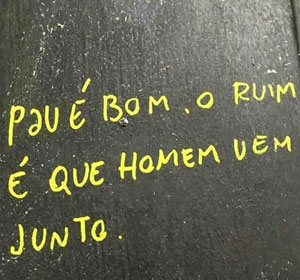 PAU É BOM. O RUIM
É QUE HOMEM VEM
JUNTO.